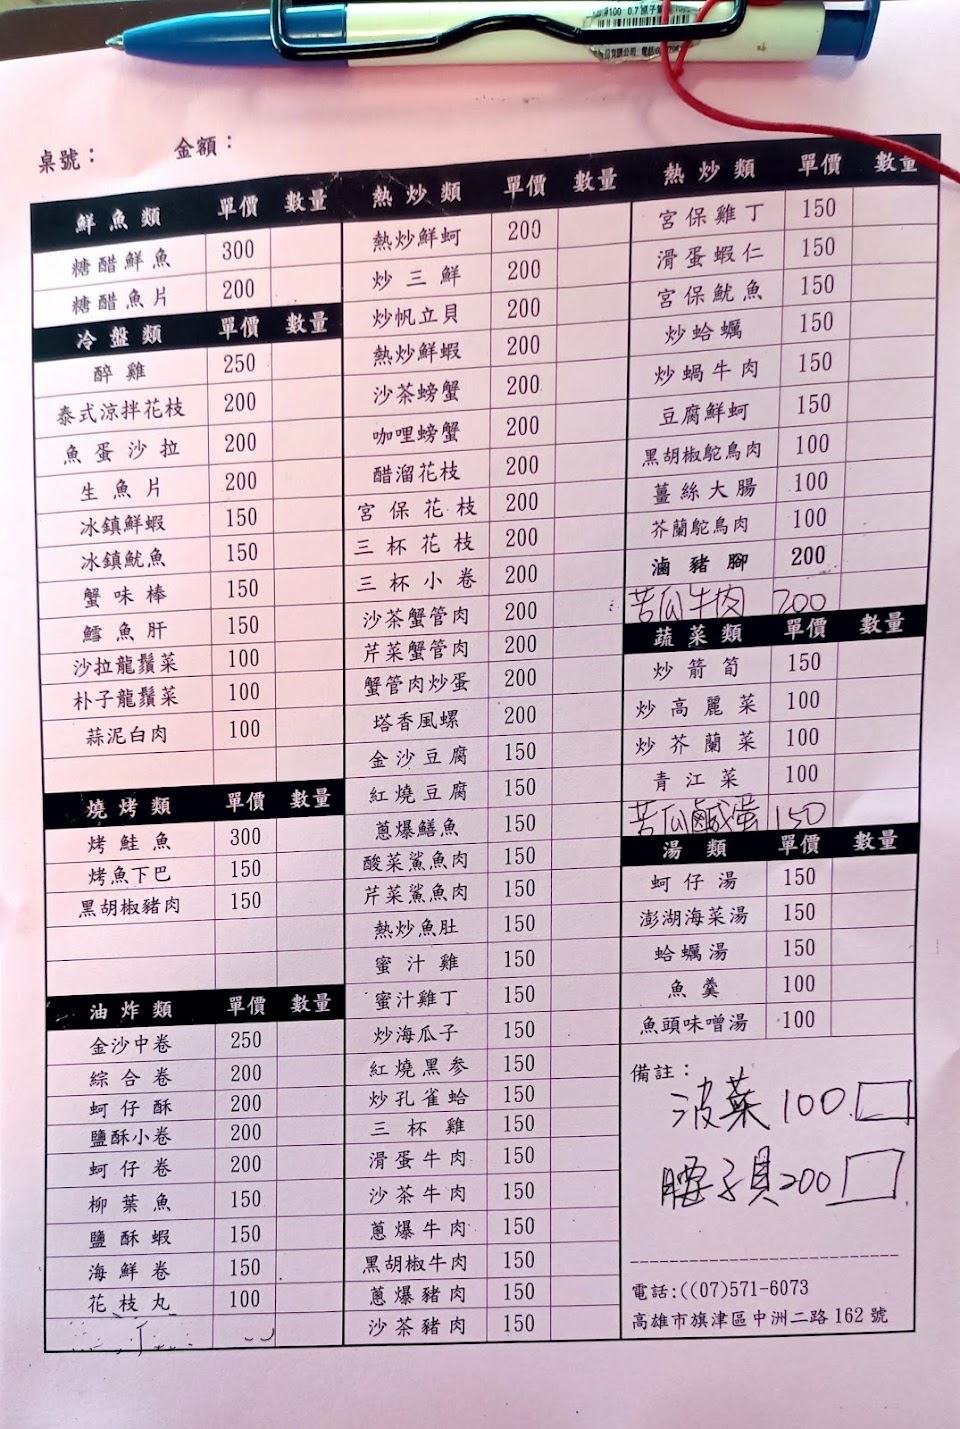 #100 0.7
桌號： 金額：
鮮魚類 單價 數量
糖醋鮮魚 300
糖醋魚片 200
冷盤類 單價 數量
醉雞 250
泰式涼拌花枝 200
魚蛋沙拉 200
生魚片 200
冰鎮鮮蝦 150
冰鎮魷魚 150
蟹味棒 150
鱈魚肝 150
沙拉龍鬚菜 100
朴子龍鬚菜 100
蒜泥白肉 100
燒烤類 單價 數量
烤鮭魚 300
烤魚下巴 150
黑胡椒豬肉 150
油炸類 單價 數量
金沙中卷 250
綜合卷 200
蚵仔酥 200
鹽酥小卷 200
蚵仔卷 200
柳葉魚 150
鹽酥蝦 150
海鮮卷 150
花枝丸 100
熱炒類 單價 數量
熱炒鮮蚵 200
炒三鮮 200
炒帆立貝 200
熱炒鮮蝦 200
沙茶螃蟹 200
咖哩螃蟹 200
醋溜花枝 200
宮保花枝 200
三杯花枝 200
三杯小卷 200
沙茶蟹管肉 200
芹菜蟹管肉 200
蟹管肉炒蛋 200
塔香風螺 200
金沙豆腐 150
紅燒豆腐 150
蔥爆鱔魚 150
酸菜鯊魚肉 150
芹菜鯊魚肉 150
熱炒魚肚 150
蜜汁雞 150
蜜汁雞丁 150
炒海瓜子 150
紅燒黑參 150
炒孔雀蛤 150
三杯雞 150
滑蛋牛肉 150
沙茶牛肉 150
蔥爆牛肉 150
黑胡椒牛肉 150
蔥爆豬肉 150
沙茶豬肉 150
熱炒類 單價 數量
宮保雞丁 150
滑蛋蝦仁 150
宮保魷魚 150
炒蛤蠣 150
炒蝸牛肉 150
豆腐鮮蚵 150
黑胡椒鴕鳥肉 100
薑絲大腸 100
芥蘭鴕鳥肉 100
滷豬腳 200
苦瓜牛肉 200
蔬菜類 單價 數量
炒箭筍 150
炒高麗菜 100
炒芥蘭菜 100
青江菜 100
苦瓜鹹蛋 150
湯類 單價 數量
蚵仔湯 150
澎湖海菜湯 150
蛤蠣湯 150
魚羹 100
魚頭味噌湯 100
備註：
波菜 100
腰子貝 200
電話:((07)571-6073
高雄市旗津區中洲二路162號